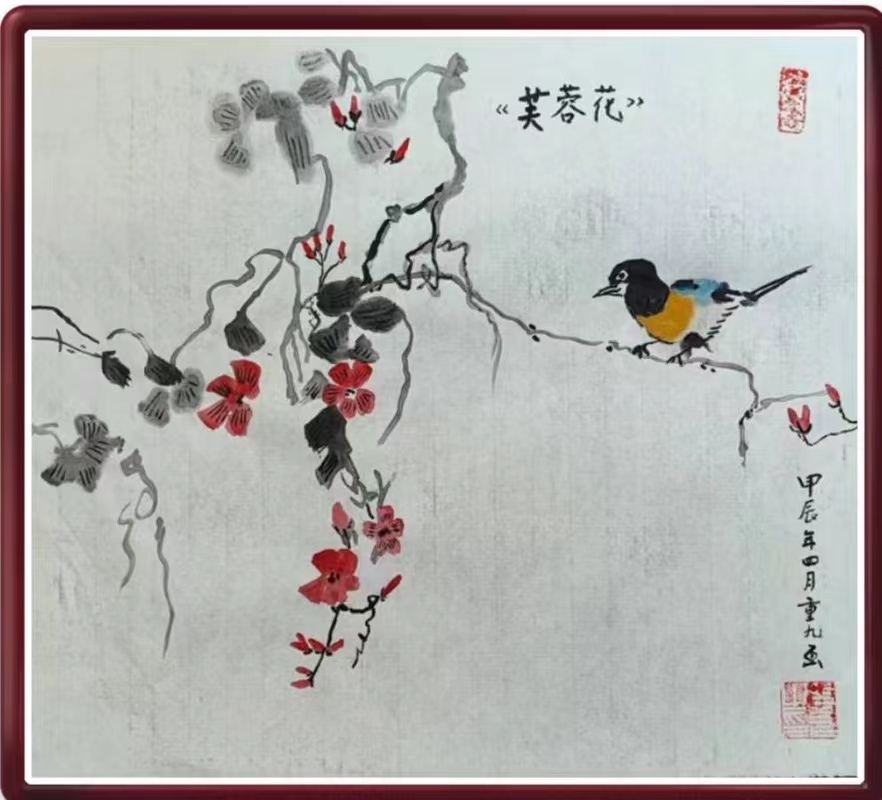 《芙蓉花》
甲辰年四月重九画